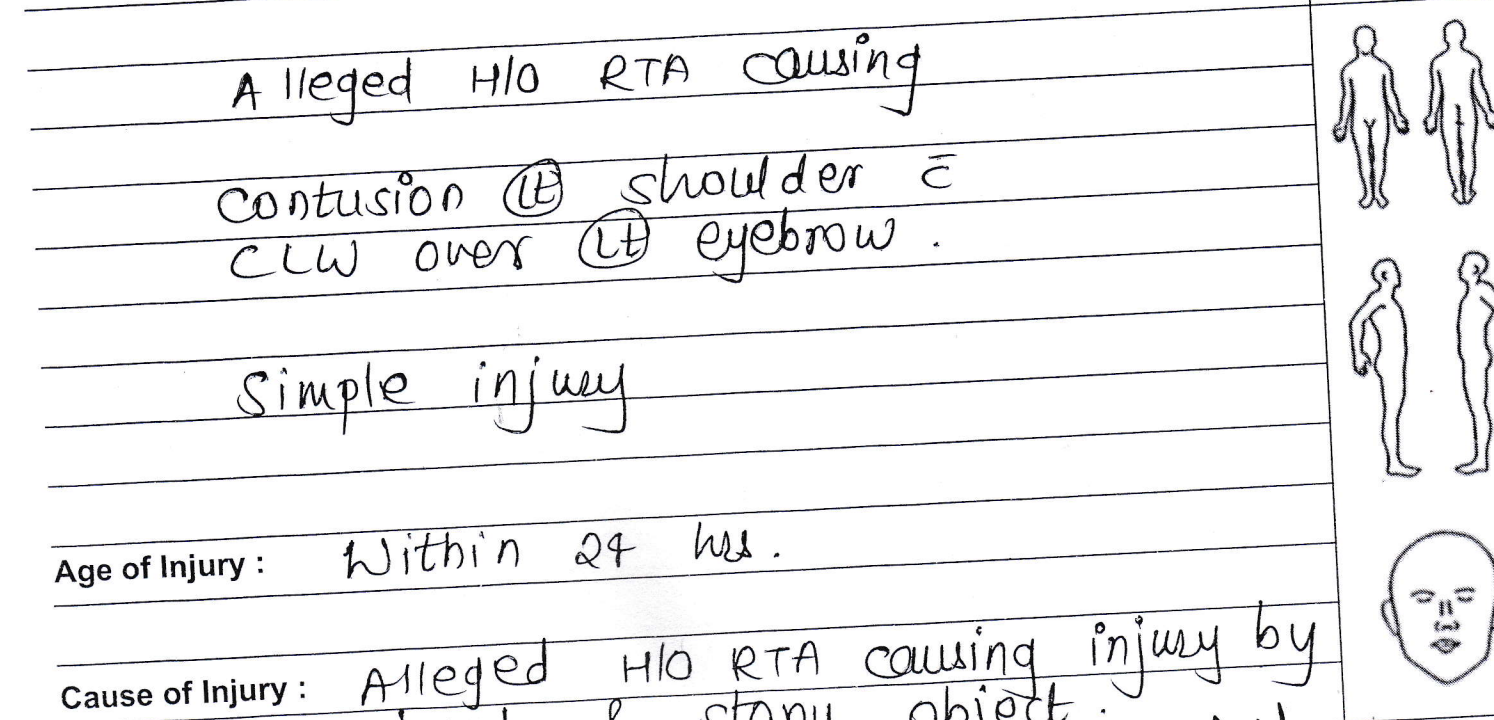 Alleged H/O RTA causing
contusion Lt shoulder c̄
CLW over Lt eyebrow.
Simple injury
Age of Injury : Within 24 hrs.
Cause of Injury : Alleged H/O RTA causing injury by
& stony object.